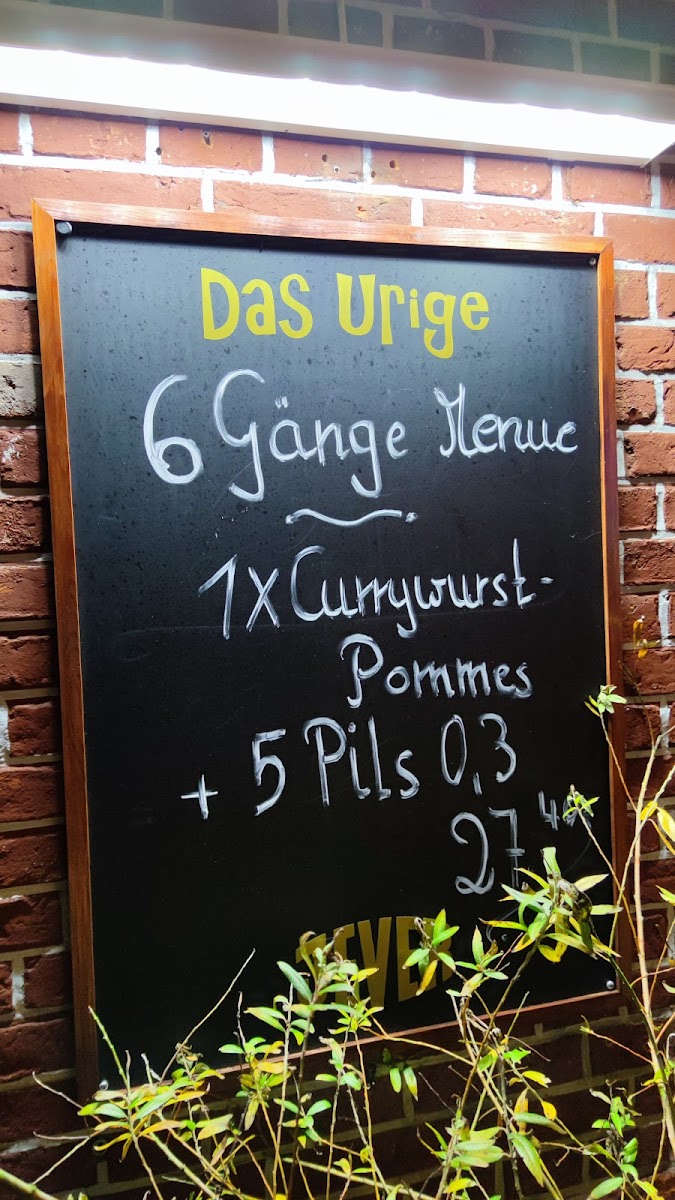 Das Urige
6 Gänge Menue
1x Currywurst-
Pommes
+ 5 Pils 0,3
27